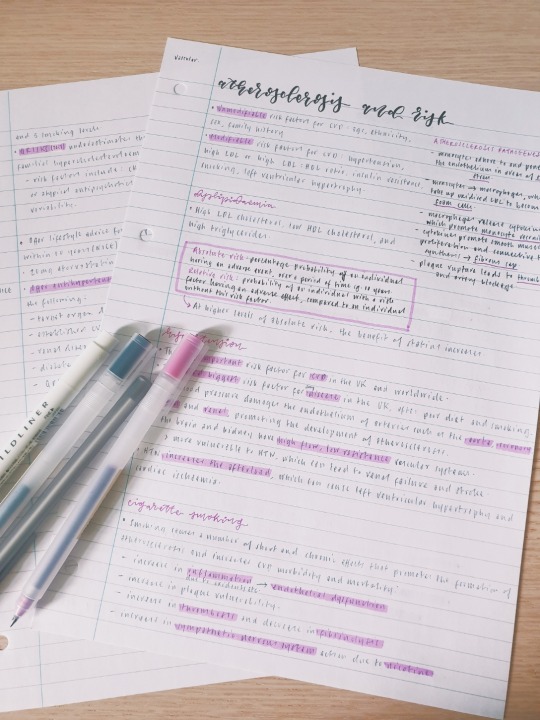 and 3 smoking
underestimates
risk factors include
or atypical antipsychotic
variability.
lifestyle advice
the following:
- target organ
- established
- renal
MILDLINER
atherosclerosis and risk
• Unmodifiable risk factors for CVD - age, ethnicity,
sex, family history
• Modifiable risk factors for CVD: hypertension,
high LDL or high LDL:HDL ratio, insulin resistance,
smoking, left ventricular hypertrophy.
dyslipidaemia
• High LDL cholesterol, low HDL cholesterol, and
high triglycerides
Absolute risk: percentage probability of an individual
having an adverse event over a period of time
Relative risk: probability of an individual with a risk
factor having an adverse effect, compared to an individual
without this risk factor.
At higher levels of absolute risk, the benefit of statins increases
ATHEROSCLEROSIS
- monocytes adhere to and
the endothelium in areas of
stress
- monocytes → macrophages,
take up oxidised LDL to become
foam cells
- macrophages release cytokines
which promote monocyte
- cytokines promote smooth muscle
proliferation and connective
synthesis → fibrous cap
- plaque rupture leads to
and artery blockage
important risk factor for CVD in the UK and worldwide.
biggest risk factor for disease in the UK, after poor diet and smoking
pressure damages the endothelium of arteries such as the aorta, coronary
and renal, promoting the development of atherosclerosis.
brain and kidney have high flow, low resistance vascular systems
→ more vulnerable to HTN, which can lead to renal failure and stroke.
• HTN increases the afterload, which can cause left ventricular hypertrophy and
cardiac ischaemia.
cigarette smoking
• Smoking causes a number of short and chronic effects that promote the formation of
atherosclerosis and increases CVD morbidity and mortality:
- increase in inflammation → endothelial dysfunction
- increase in plaque vulnerability.
- increase in thrombosis and decrease in fibrinolysis
- increase in sympathetic nervous system action due to nicotine